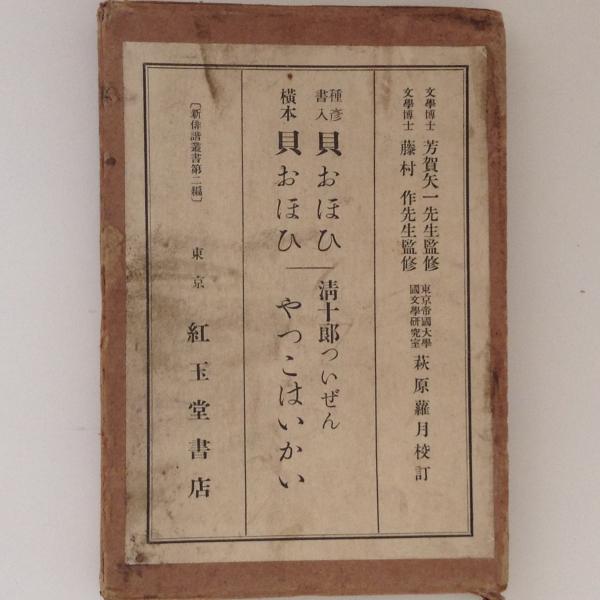 文學博士 芳賀矢一先生監修
文學博士 藤村 作先生監修
東京帝國大學
國文學研究室 萩原蘿月校訂
種彦
書入 貝おほひ
清十郎ついぜん
橫本 貝おほひ
やつこはいかい
〔新俳諧叢書第二編〕
東京 紅玉堂書店